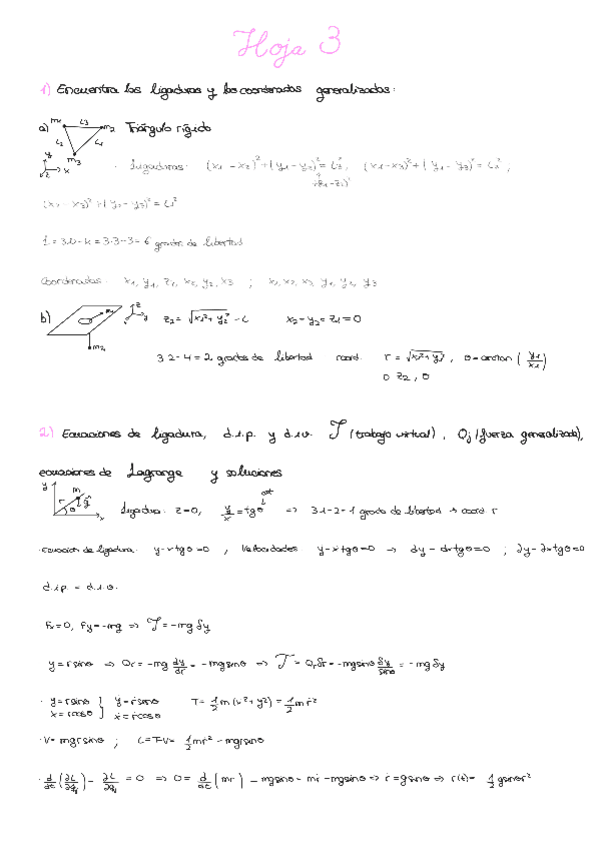 Hoja 3
1) Encuentra las ligaduras y las coordenadas generalizadas:
a) m1 L3 m2 Triángulo rígido
L2 L1
m3
y
z x
· Ligaduras: (x1-x2)²+(y1-y2)²=L3², (x1-x3)²+(y1-y3)²=L2²;
+(z1-z2)²
(x2-x3)²+(y2-y3)²=L1²
f=3·N-k=3·3-3=6 grados de libertad
Coordenadas: x1, y1, z1, x2, y2, x3 ; x1, x2, x3, y1, y2, y3
b) m1 z y x z2=√(x1²+y1²)-L x2=y2=z1=0
m2
3·2-4=2 grados de libertad coord. r=√(x1²+y1²), θ=arctan(y1/x1)
o z2, θ
2) Ecuaciones de ligadura, d.i.p. y d.i.v. T (trabajo virtual), Qj (fuerza generalizada),
ecuaciones de Lagrange y soluciones
y m r g θ x
Ligadura: z=0, y/x=tgθ => 3·1-2=1 grado de libertad → coord. r
· Ecuación de ligadura: y-xtgθ=0, Velocidades ẏ-ẋtgθ=0 → dy-dxtgθ=0; δy-δxtgθ=0
d.i.p. = d.i.v.
Fx=0, Fy=-mg => T=-mgδy
y=rsinθ => Qr=-mg dy/dr=-mgsinθ => T=Qrδr=-mgsinθ δy/sinθ=-mgδy
· y=rsinθ } ẏ=ṙsinθ T=1/2m(ẋ²+ẏ²)=1/2mṙ²
x=rcosθ } ẋ=ṙcosθ
· V=mgrsinθ; L=T-V=1/2mṙ²-mgrsinθ
· d/dt(∂L/∂q̇j)-∂L/∂qj=0 => 0=d/dt(mṙ)-mgsinθ=mr̈-mgsinθ => r̈=gsinθ => r(t)=1/2gsinθt²